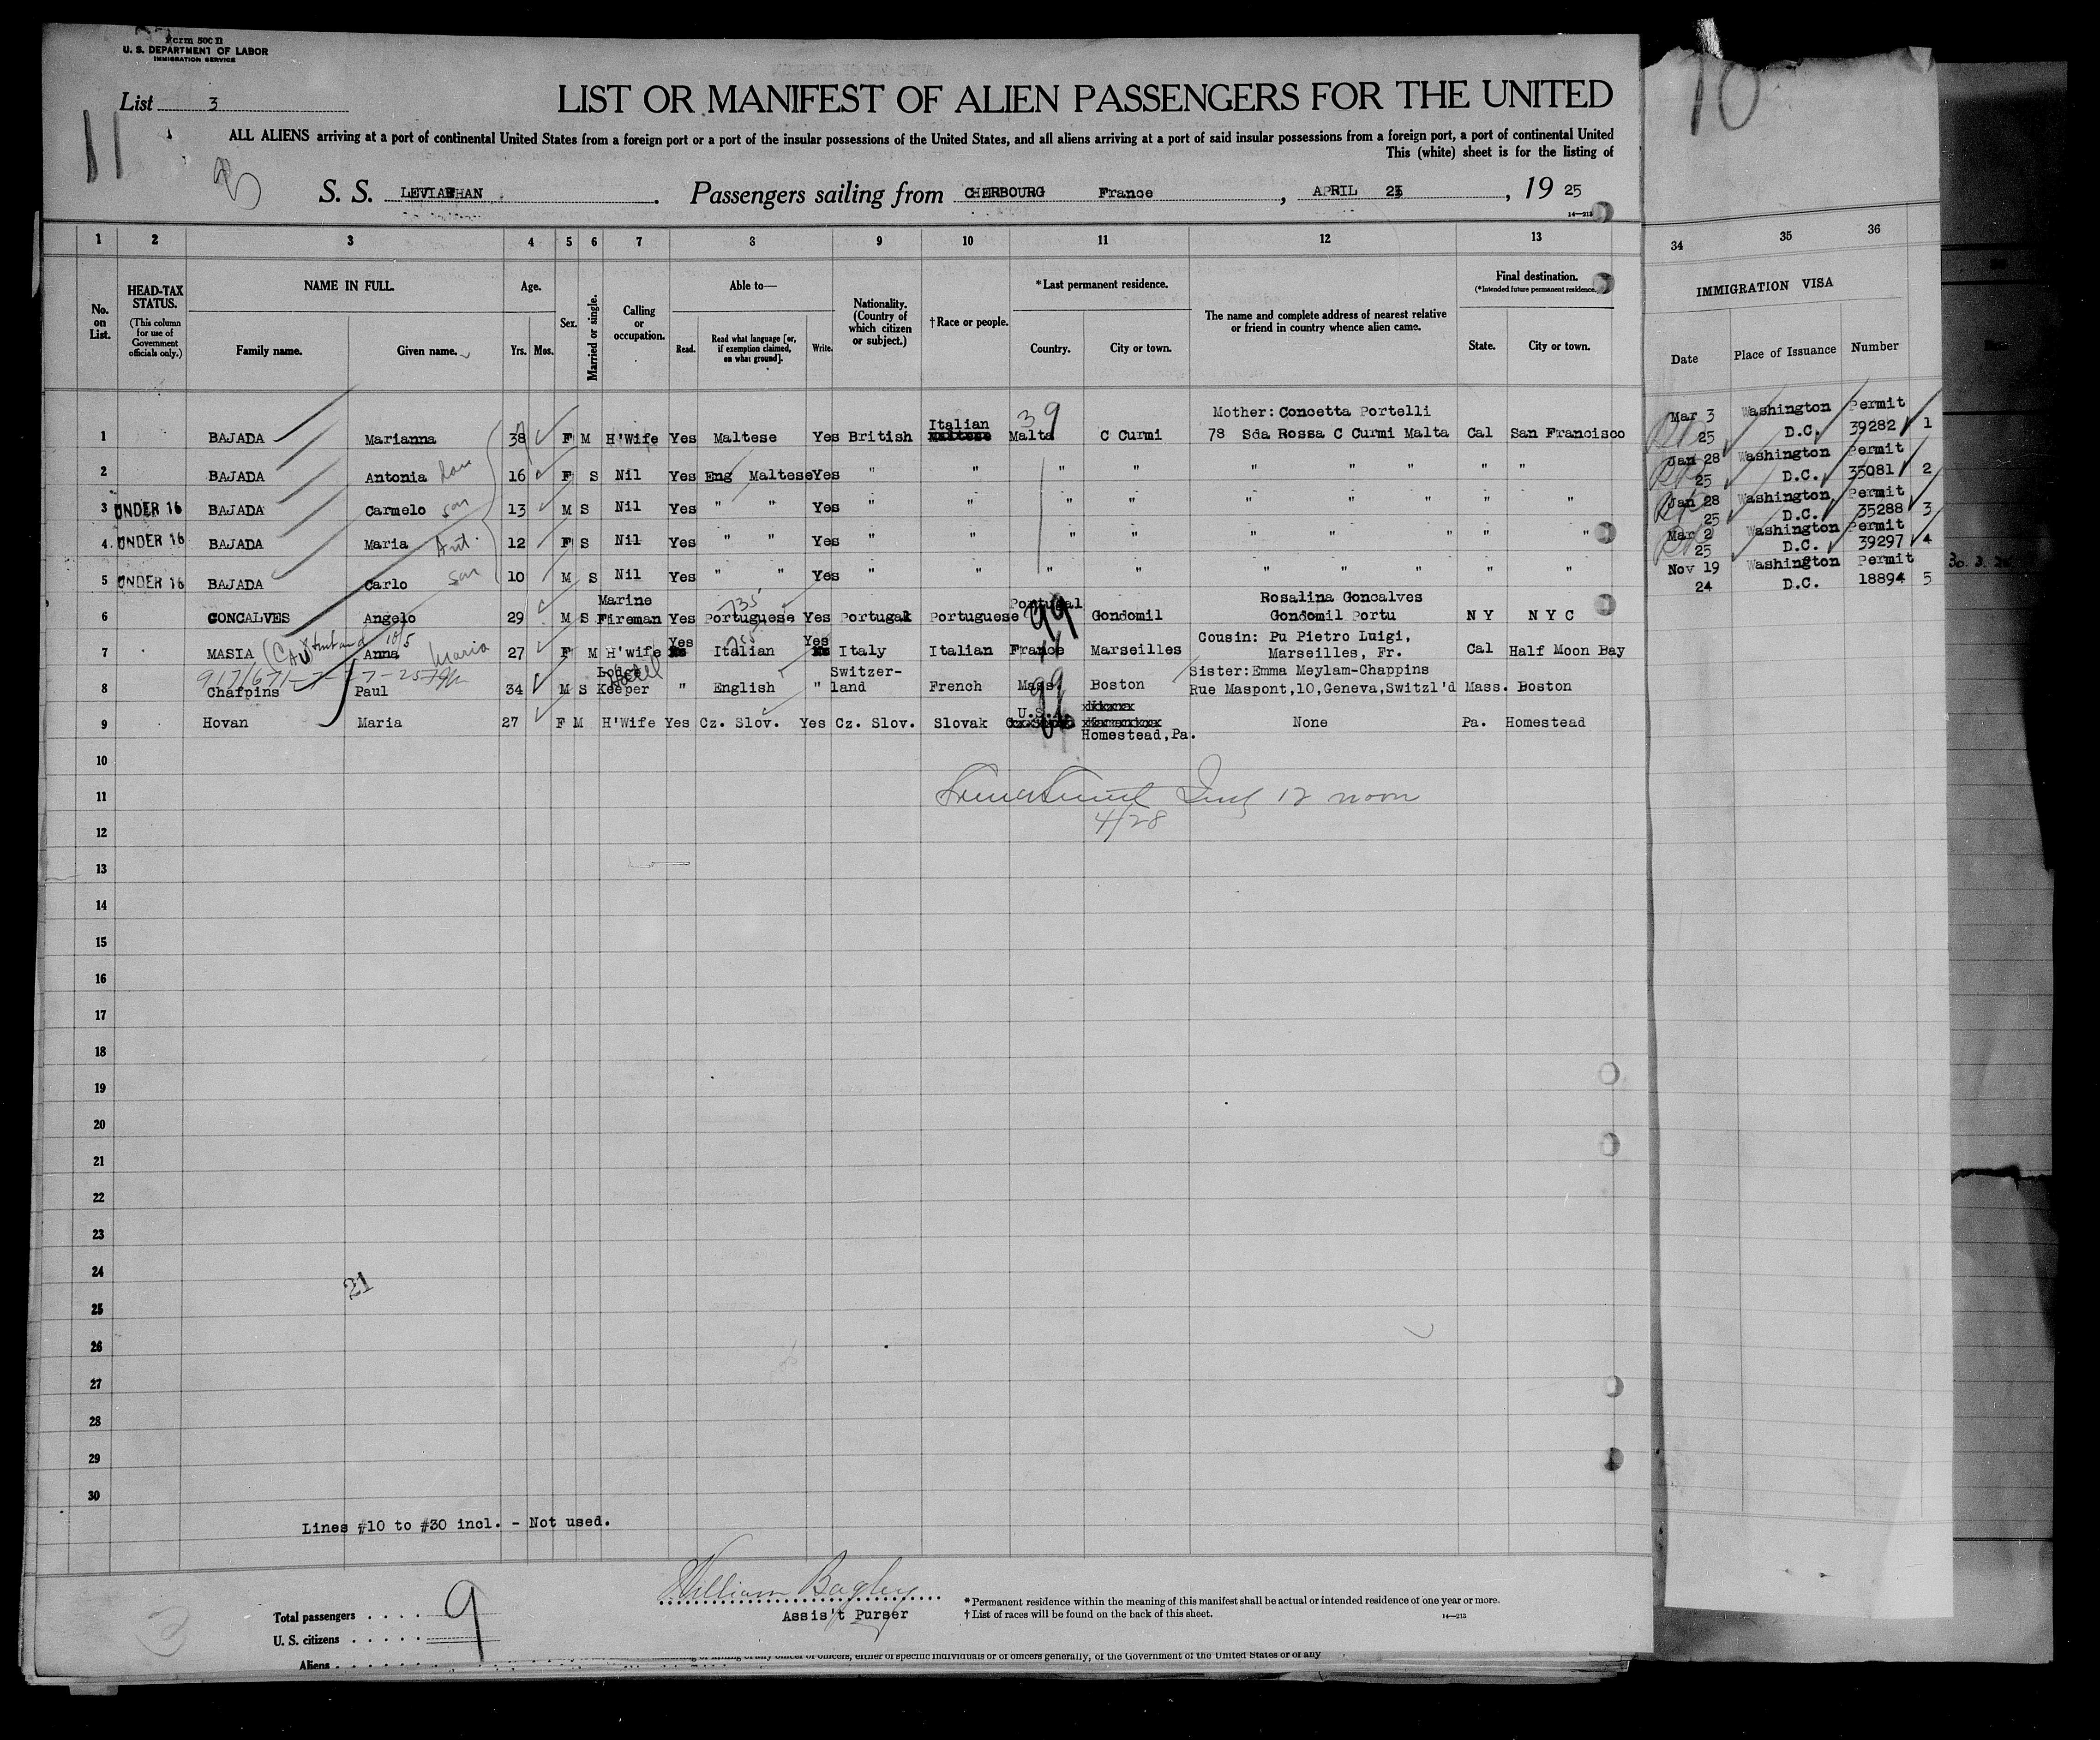 Form 500 B
U. S. DEPARTMENT OF LABOR
IMMIGRATION SERVICE
List 3
11
10
LIST OR MANIFEST OF ALIEN PASSENGERS FOR THE UNITED
ALL ALIENS arriving at a port of continental United States from a foreign port or a port of the insular possessions of the United States, and all aliens arriving at a port of said insular possessions from a foreign port, a port of continental United
This (white) sheet is for the listing of
S. S. LEVIATHAN. Passengers sailing from CHERBOURG France, APRIL 21, 19 25
14—213
1 2 3 4 5 6 7 8 9 10 11 12 13 34 35 36
No. on List.
HEAD-TAX STATUS.
(This column for use of Government officials only.)
NAME IN FULL.
Family name. Given name.
Age.
Yrs. Mos.
Sex.
Married or single.
Calling or occupation.
Able to—
Read. Read what language [or, if exemption claimed, on what ground]. Write.
Nationality. (Country of which citizen or subject.)
†Race or people.
*Last permanent residence.
Country. City or town.
The name and complete address of nearest relative or friend in country whence alien came.
Final destination.
(*Intended future permanent residence.)
State. City or town.
IMMIGRATION VISA
Date Place of Issuance Number
1 BAJADA Marianna 38 F M H'Wife Yes Maltese Yes British Italian Maltese Malta 39 C Curmi Mother: Concetta Portelli 78 Sda Rossa C Curmi Malta Cal San Francisco Mar 3 25 Washington D.C. Permit 39282 1
2 BAJADA Antonia 16 F S Nil Yes Eng Maltese Yes " " " " " " " " " Jan 28 25 Washington D.C. Permit 35081 2
3 UNDER 16 BAJADA Carmelo son 13 M S Nil Yes " " Yes " " " " " " " " " Jan 28 25 Washington D.C. Permit 35288 3
4 UNDER 16 BAJADA Maria 12 F S Nil Yes " " Yes " " " " " " " " " Mar 2 25 Washington D.C. Permit 39297 4
5 UNDER 16 BAJADA Carlo son 10 M S Nil Yes " " Yes " " " " " " " " " Nov 19 24 Washington D.C. Permit 18894 5
6 GONCALVES Angelo 29 M S Marine Fireman Yes Portuguese Yes Portugal Portuguese Portugal 99 Gondomil Rosalina Goncalves Gondomil Portu N Y N Y C
7 MASIA Anna Maria 27 F M H'wife Yes Italian Yes Italy Italian France Marseilles Cousin: Pu Pietro Luigi, Marseilles, Fr. Cal Half Moon Bay
8 Chafpins Paul 34 M S Lodge Hotel Keeper " English " Switzer-land French Mass. 99 Boston Sister: Emma Meylam-Chappins Rue Maspont,10,Geneva,Switzl'd Mass. Boston
9 Hovan Maria 27 F M H'Wife Yes Cz. Slov. Yes Cz. Slov. Slovak U.S.A. Homestead,Pa. None Pa. Homestead
10
11
12 noon
4/28
12
13
14
15
16
17
18
19
20
21
22
23
24
21
25
26
27
28
29
30
Lines #10 to #30 incl. - Not used.
William Bagley
Assis't Purser
Total passengers . . . . 9
U. S. citizens . . . . .
Aliens
* Permanent residence within the meaning of this manifest shall be actual or intended residence of one year or more.
† List of races will be found on the back of this sheet.
14—213
either of specific individuals or of officers generally, of the Government of the United States or of any